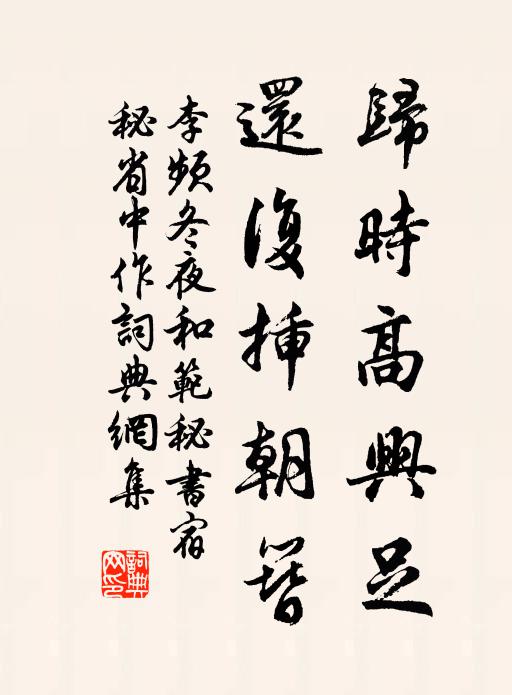 歸時高興足
還復插朝簪
李頻冬夜和範秘書宿
秘省中作詞典網集
詞典
网印